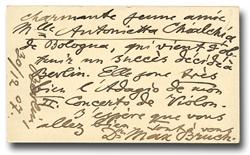 charmante jeune amie,
Mlle Antonietta Chialchia
de Bologna, qui vient d'ob-
tenir un succès décidé à
Berlin. Elle joue très
bien l'Adagio de mon
II. Concerto de Violon.
J'espère que vous
Tout à vous
Dr. Max Bruch
30/12 07.